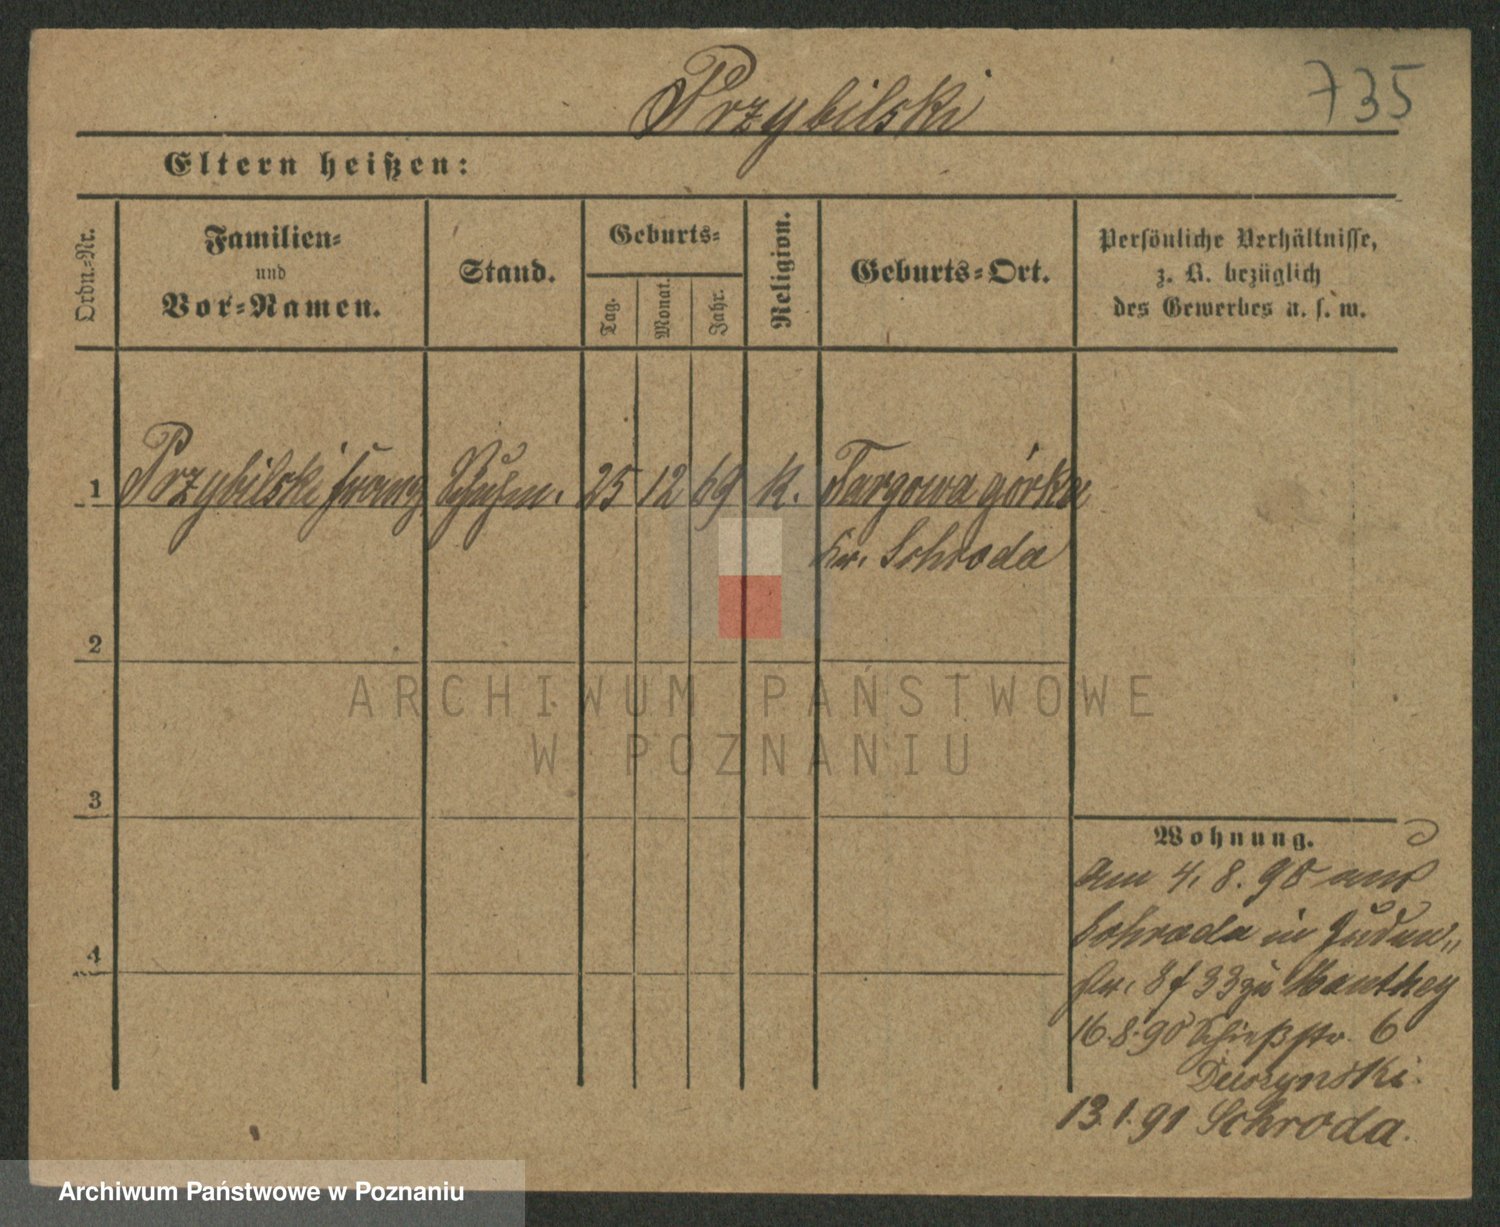 735
Przybilski
Eltern heißen:
Ordn.-Nr.
Familien-
und
Vor-Namen.
Stand.
Geburts-
Tag.
Monat.
Jahr.
Religion.
Geburts-Ort.
Persönliche Verhältnisse,
z. B. bezüglich
des Gewerbes u. s. w.
1 Przybilski Franz Schuhm. 25 12 69 K. Targowa górka
Kr. Schroda
2
3
4
ARCHIWUM PAŃSTWOWE
W POZNANIU
Wohnung.
Am 4. 8. 90 aus
Schroda in Juden-
str. 33 zu Manthey
16.8.90 Schießstr. 6
13.1.91 Schroda.
Archiwum Państwowe w Poznaniu